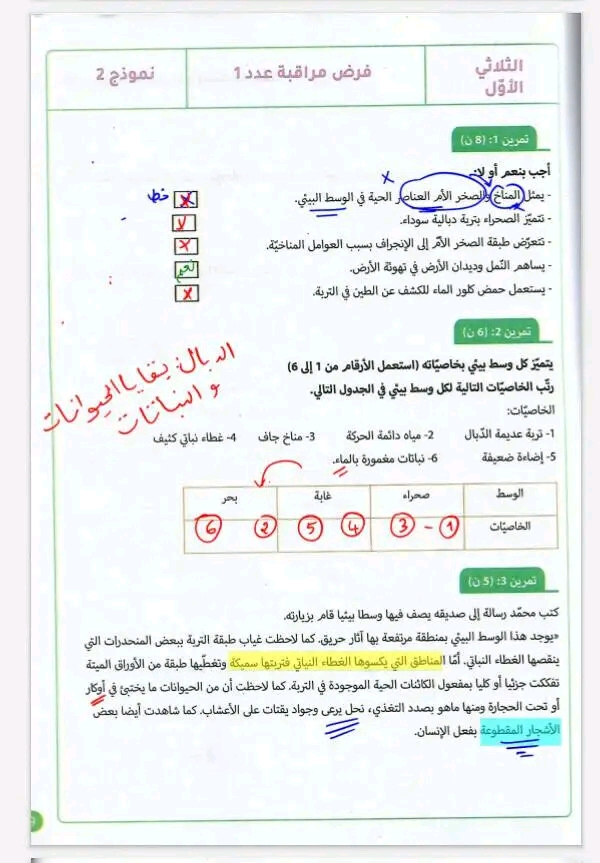 الثلاثي الأوّل
فرض مراقبة عدد 1
نموذج 2
تمرين 1: (8 ن)
أجب بنعم أو لا:
- يمثل المناخ والصخر الأم العناصر الحية في الوسط البيئي. خطا
- تتميّز الصحراء بتربة دبالية سوداء. لا
- تتعرّض طبقة الصخر الأمّ إلى الإنجراف بسبب العوامل المناخيّة.
- يساهم النّمل وديدان الأرض في تهوئة الأرض. نعم
- يستعمل حمض كلور الماء للكشف عن الطين في التربة.
تمرين 2: (6 ن)
يتميّز كل وسط بيئي بخاصيّاته (استعمل الأرقام من 1 إلى 6)
رتّب الخاصيّات التالية لكل وسط بيئي في الجدول التالي.
الدبال: بقايا الحيوانات
و النباتات
الخاصيّات:
1- تربة عديمة الدّبال 2- مياه دائمة الحركة 3- مناخ جاف 4- غطاء نباتي كثيف
5- إضاءة ضعيفة 6- نباتات مغمورة بالماء.
الوسط صحراء غابة بحر
الخاصيّات 1 - 3 4 5 2 6
تمرين 3: (5 ن)
كتب محمّد رسالة إلى صديقه يصف فيها وسطا بيئيا قام بزيارته.
«يوجد هذا الوسط البيئي بمنطقة مرتفعة بها آثار حريق. كما لاحظت غياب طبقة التربة ببعض المنحدرات التي
ينقصها الغطاء النباتي. أمّا المناطق التي يكسوها الغطاء النباتي فتربتها سميكة وتغطّيها طبقة من الأوراق الميتة
تفككت جزئيا أو كليا بمفعول الكائنات الحية الموجودة في التربة. كما لاحظت أن من الحيوانات ما يختبئ في أوكار
أو تحت الحجارة ومنها ماهو بصدد التغذي، نحل يرعى وجواد يقتات على الأعشاب. كما شاهدت أيضا بعض
الأشجار المقطوعة بفعل الإنسان.